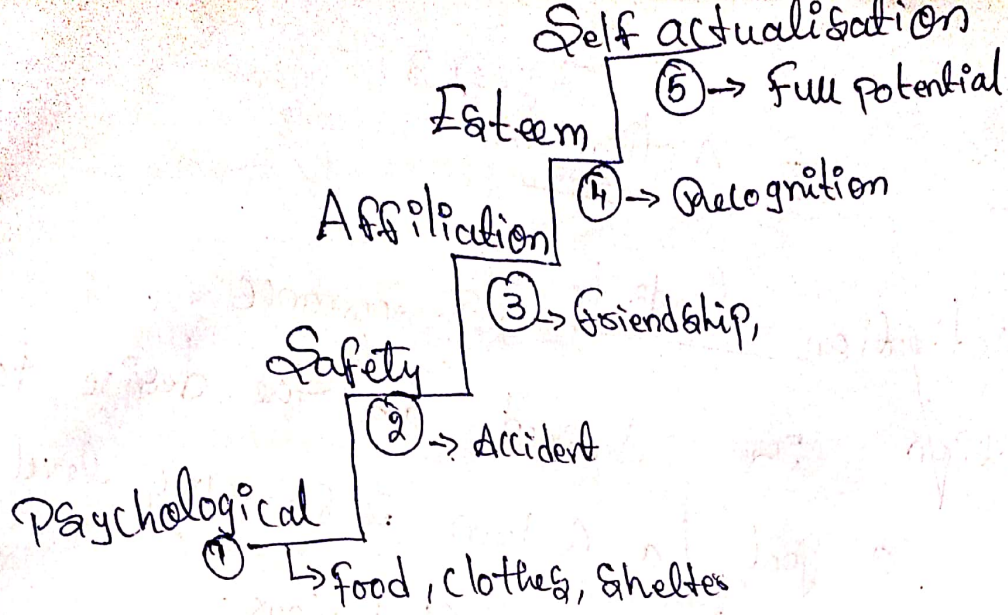 Self actualisation
⑤→ Full potential
Esteem
④→ Recognition
Affiliation
③→ friendship,
Safety
②→ Accident
Psychological
①
↳ food, clothes, shelter